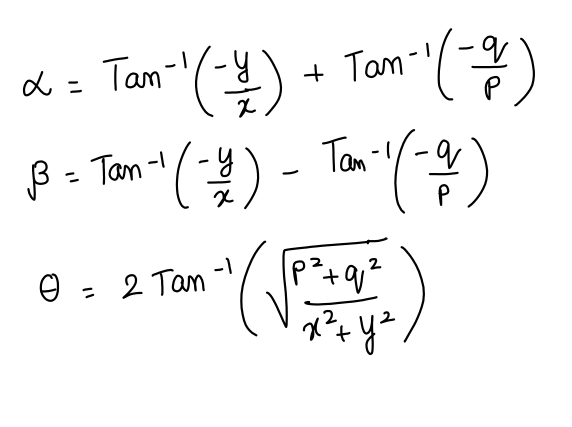 α = Tan⁻¹(-y/x) + Tan⁻¹(-q/p)
β = Tan⁻¹(-y/x) - Tan⁻¹(-q/p)
θ = 2 Tan⁻¹(√((p²+q²)/(x²+y²)))